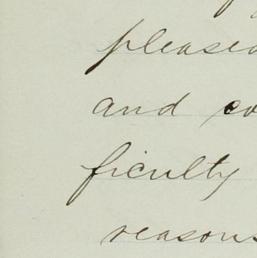 pleased
and co
ficulty
reasons